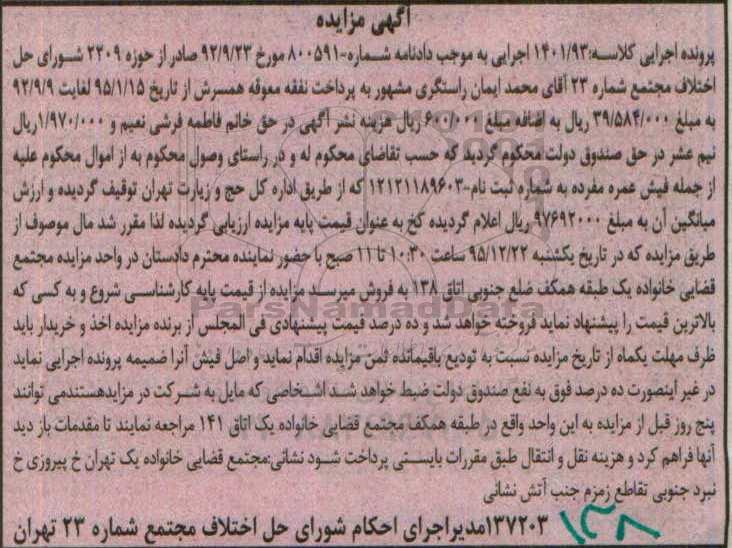 آگهی مزایده
پرونده اجرایی کلاسه:۱۴۰۱/۹۳ اجرایی به موجب دادنامه شماره-۸۰۰۵۹۱ مورخ ۹۲/۹/۲۳ صادر از حوزه ۲۲۰۹ شورای حل
اختلاف مجتمع شماره ۲۳ آقای محمد ایمان راستگری مشهور به پرداخت نفقه معوقه همسرش از تاریخ ۹۵/۱/۱۵ لغایت ۹۲/۹/۹
به مبلغ ۳۹/۵۸۴/۰۰۰ ریال به اضافه مبلغ ۶۰۰/۰۰۰ ریال هزینه نشر آگهی در حق خانم فاطمه فرشی نعیم و ۱/۹۷۰/۰۰۰ریال
نیم عشر در حق صندوق دولت محکوم گردید که حسب تقاضای محکوم له و در راستای وصول محکوم به از اموال محکوم علیه
از جمله فیش عمره مفرده به شماره ثبت نام-۱۲۱۲۱۱۸۹۶۰۳ که از طریق اداره کل حج و زیارت تهران توقیف گردیده و ارزش
میانگین آن به مبلغ ۹۷۶۹۲۰۰۰ ریال اعلام گردیده کخ به عنوان قیمت پایه مزایده ارزیابی گردیده لذا مقرر شد مال موصوف از
طریق مزایده که در تاریخ یکشنبه ۹۵/۱۲/۲۲ ساعت ۱۰:۳۰ تا ۱۱ صبح با حضور نماینده محترم دادستان در واحد مزایده مجتمع
قضایی خانواده یک طبقه همکف ضلع جنوبی اتاق ۱۳۸ به فروش میرسد مزایده از قیمت پایه کارشناسی شروع و به کسی که
بالاترین قیمت را پیشنهاد نماید فروخته خواهد شد و ده درصد قیمت پیشنهادی فی المجلس از برنده مزایده اخذ و خریدار باید
ظرف مهلت یکماه از تاریخ مزایده نسبت به تودیع باقیمانده ثمن مزایده اقدام نماید و اصل فیش آنرا ضمیمه پرونده اجرایی نماید
در غیر اینصورت ده درصد فوق به نفع صندوق دولت ضبط خواهد شد اشخاصی که مایل به شرکت در مزایدهستندمی توانند
پنج روز قبل از مزایده به این واحد واقع در طبقه همکف مجتمع قضایی خانواده یک اتاق ۱۴۱ مراجعه نمایند تا مقدمات باز دید
آنها فراهم کرد و هزینه نقل و انتقال طبق مقررات بایستی پرداخت شود نشانی:مجتمع قضایی خانواده یک تهران خ پیروزی خ
نبرد جنوبی تقاطع زمزم جنب آتش نشانی
۱۳۷۲۰۳مدیراجرای احکام شورای حل اختلاف مجتمع شماره ۲۳ تهران
ParsNamadData